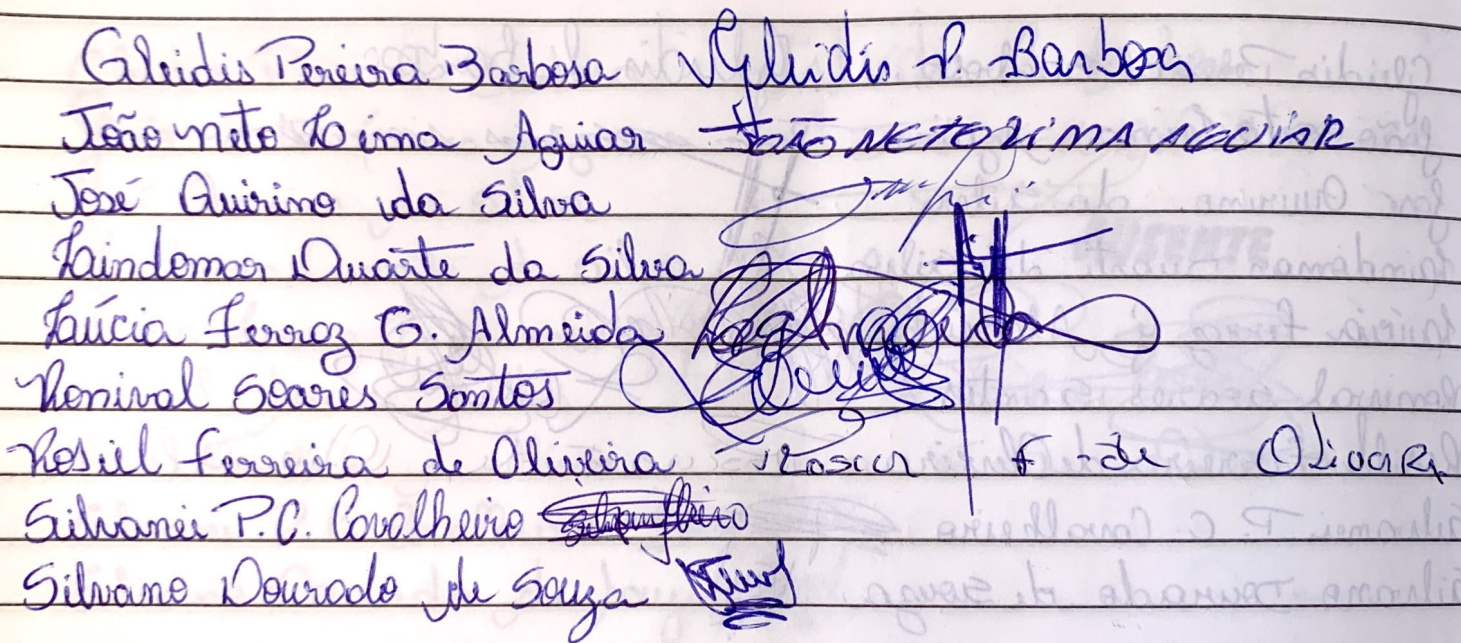 Gleidis Pereira Barbosa Gleidis P. Barbosa
João Neto Lima Aguiar JOÃO NETO LIMA AGUIAR
José Quirino da Silva
Laindomar Duarte da Silva
Laúcia Ferraz G. Almeida
Ronival Soares Santos
Rosiel Ferreira de Oliveira F. de
Silvanei P.C. Cavalheiro
Silvano Dourado de Souza